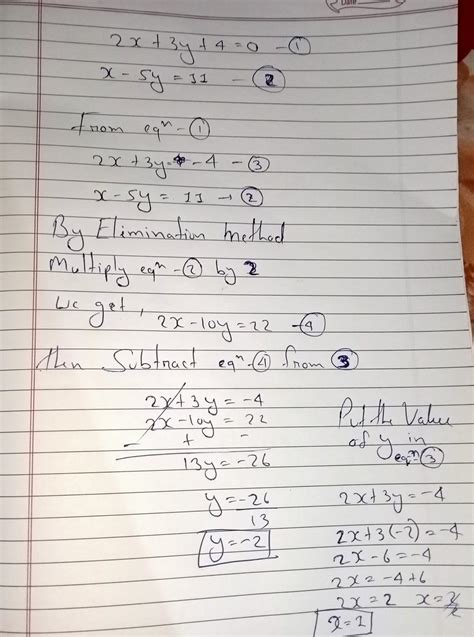 Date
2x + 3y + 4 = 0 - ①
x - 5y = 11 - ②
From eqⁿ - ①
2x + 3y = - 4 - ③
x - 5y = 11 - ②
By Elimination method
Multiply eqⁿ - ② by 2
we get,
2x - 10y = 22 - ④
then Subtract eqⁿ - ④ from ③
2x + 3y = -4
2x - 10y = 22
- + -
13y = -26
y = -26
13
y = -2
Put the Value
of y in
eqⁿ ③
2x + 3y = -4
2x + 3(-2) = -4
2x - 6 = -4
2x = -4 + 6
2x = 2 x = 2/2
x = 1